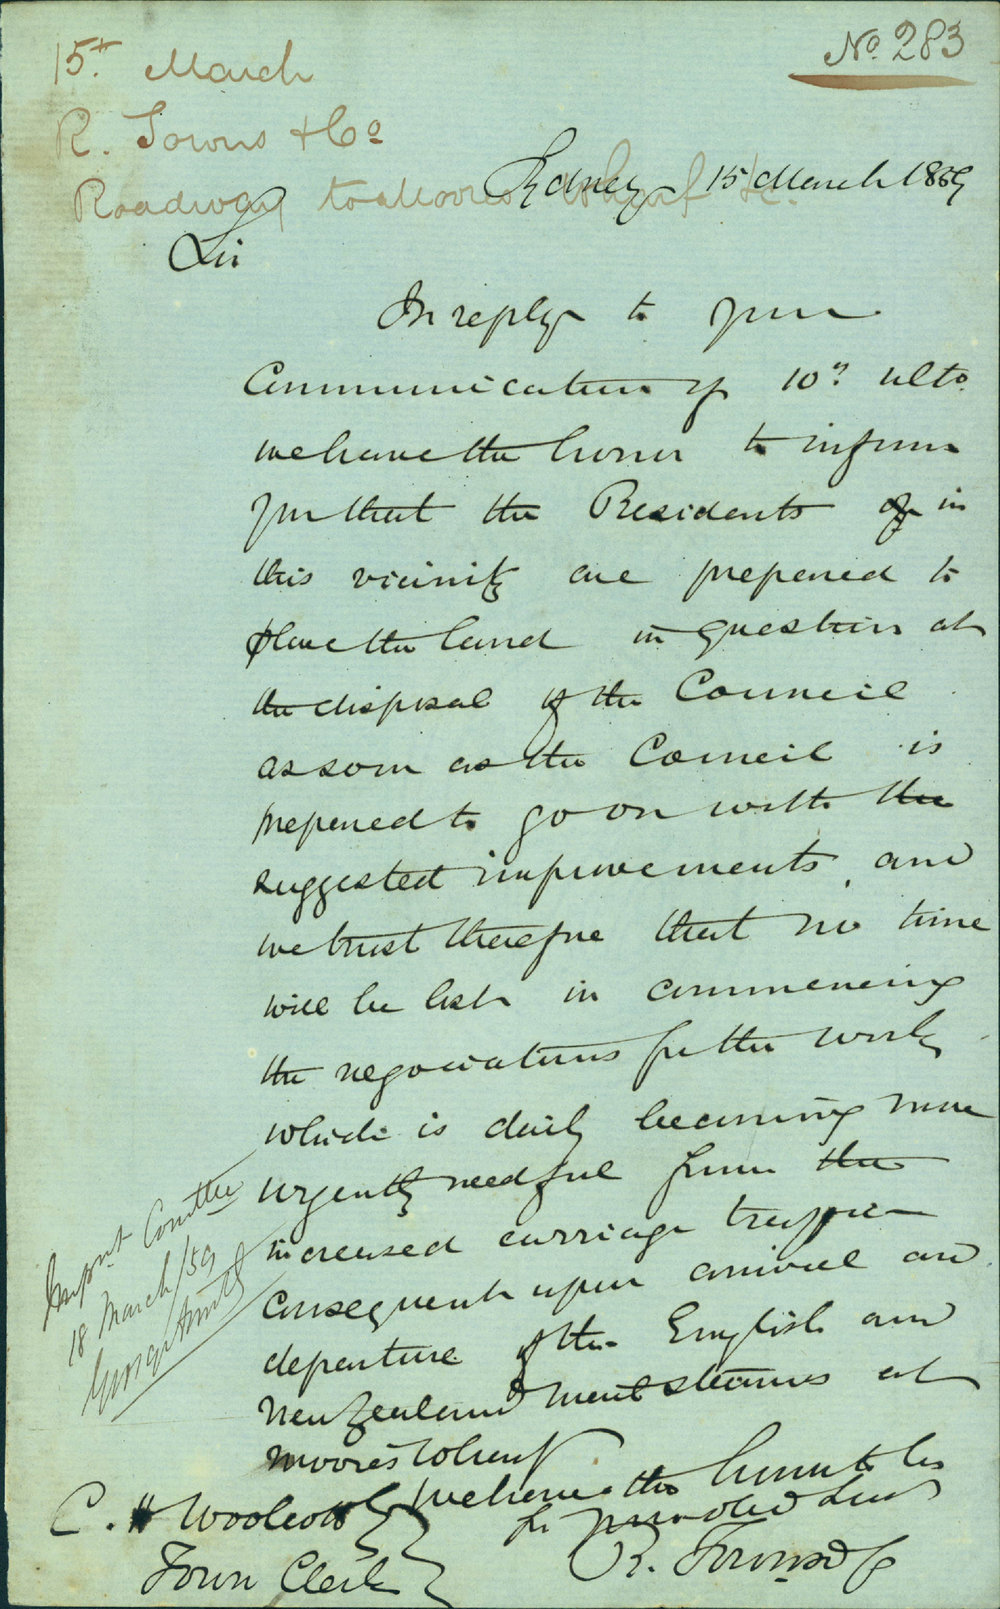 No. 283
15th March
R. Towns & Co
Roadway to Moores Wharf &c.
Sydney 15 March 1859
Sir
In reply to your
Communication of 10th ulto.
we have the honor to inform
you that the Residents in
this vicinity are prepared to
place the land in question at
the disposal of the Council
as soon as the Council is
prepared to go on with the
suggested improvements, and
we trust therefore that no time
will be lost in commencing
the negociations for the work
which is daily becoming more
urgently needful from the
increased carriage traffic
consequent upon arrival and
departure of the English and
New Zealand mail steamers at
Moores Wharf
We have the honor to be
Sir
R. Towns & Co
C. H Woolcott
Town Clerk
Impt. Comttee
18 March/59